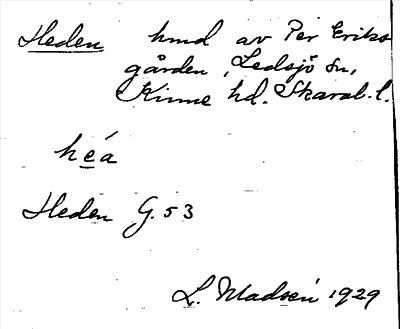 Heden hmd av Per Eriks
gården, Ledsjö sn,
Kinne hd. Skarab. l.
héa
Heden G. 53
L. Madsén 1929